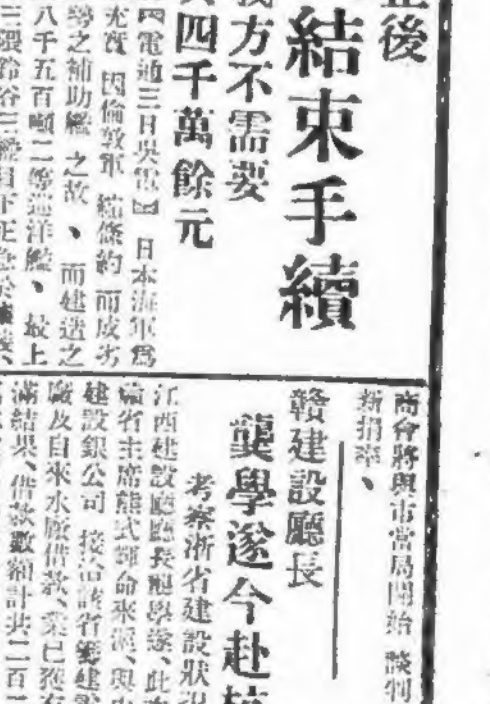 正後
結束手續
我方不需要
四千萬餘元
電通三日吳電 日本海軍爲
充實 因倫敦軍縮條約 而成劣
勢之補助艦 之故、而建造之
八千五百噸二等巡洋艦、最上
三隈鈴谷三
商會將與市當局開始 談判
新捐率、
贛建設廳長
龔學遂今赴杭
考察浙省建設狀況
江西建設廳廳長龔學遂、此次
主席熊式輝命來滬、與中
建設銀公司 接洽該省
廠及自來水廠借款、業已獲有
滿結果、借款數額計共二百